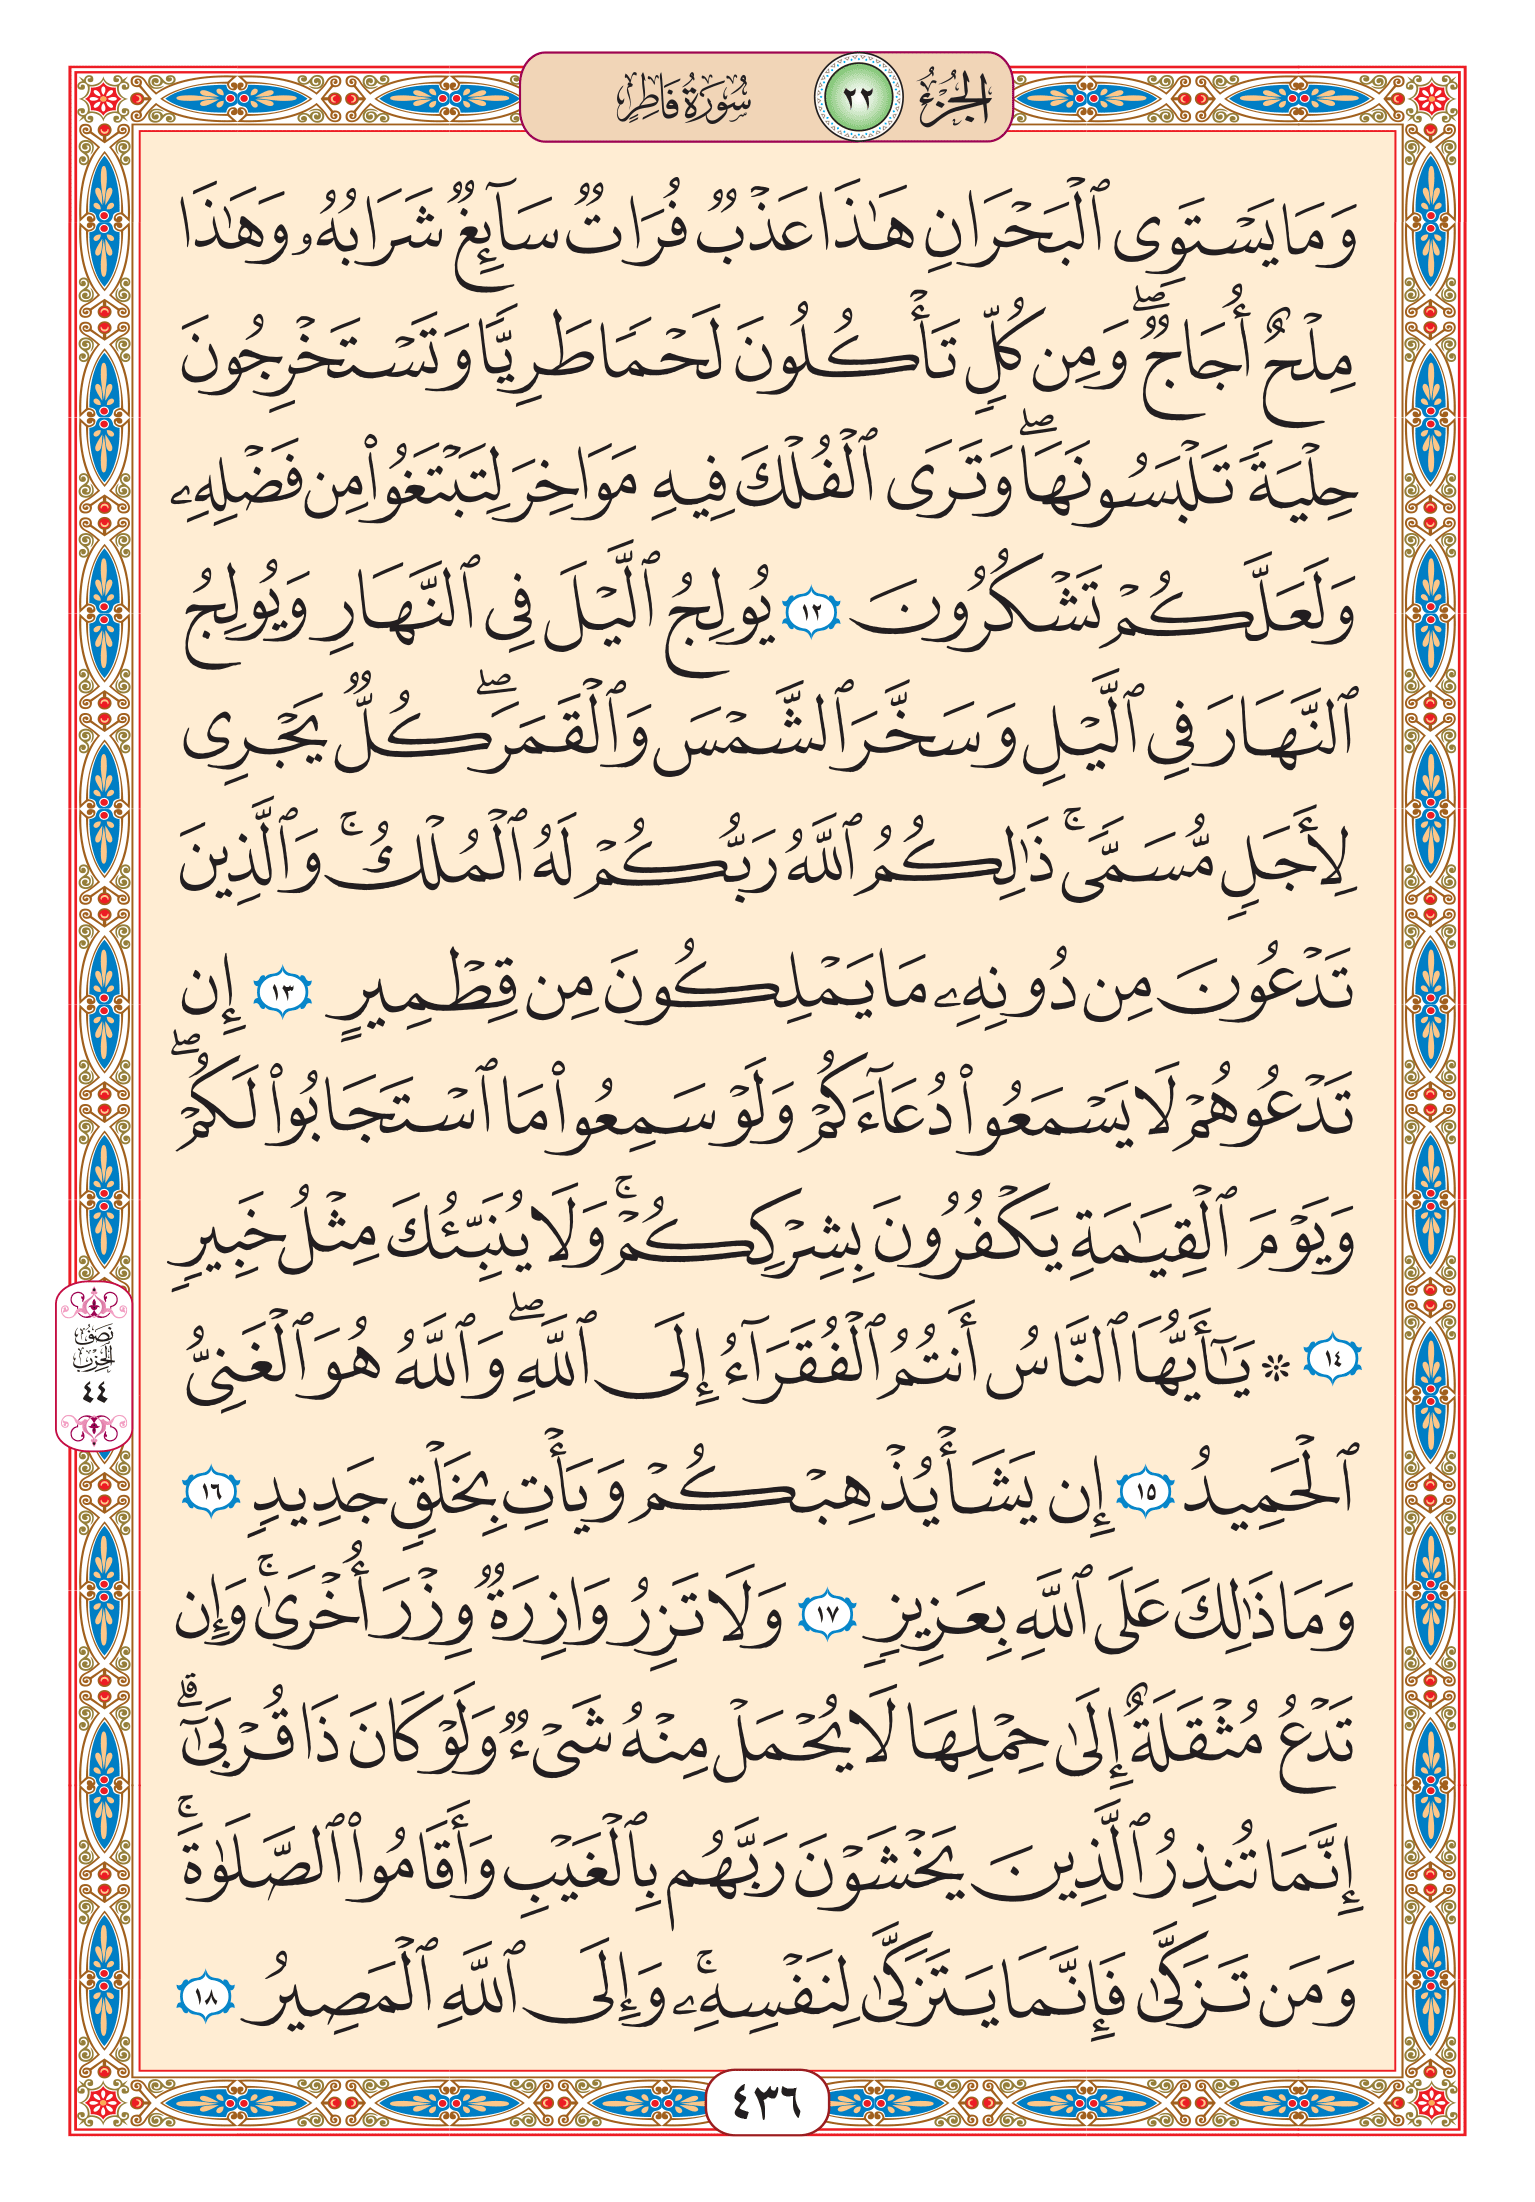 الجزء ٢٢ سورة فاطر
وَمَا يَسۡتَوِى ٱلۡبَحۡرَانِ هَٰذَا عَذۡبٌ فُرَاتٌ سَآئِغٌ شَرَابُهُۥ وَهَٰذَا
مِلۡحٌ أُجَاجٌۖ وَمِن كُلٍّ تَأۡكُلُونَ لَحۡمًا طَرِيًّا وَتَسۡتَخۡرِجُونَ
حِلۡيَةً تَلۡبَسُونَهَاۖ وَتَرَى ٱلۡفُلۡكَ فِيهِ مَوَاخِرَ لِتَبۡتَغُواْ مِن فَضۡلِهِۦ
وَلَعَلَّكُمۡ تَشۡكُرُونَ ١٢ يُولِجُ ٱلَّيۡلَ فِى ٱلنَّهَارِ وَيُولِجُ
ٱلنَّهَارَ فِى ٱلَّيۡلِ وَسَخَّرَ ٱلشَّمۡسَ وَٱلۡقَمَرَۖ كُلٌّ يَجۡرِى
لِأَجَلٍ مُّسَمًّىۚ ذَٰلِكُمُ ٱللَّهُ رَبُّكُمۡ لَهُ ٱلۡمُلۡكُۚ وَٱلَّذِينَ
تَدۡعُونَ مِن دُونِهِۦ مَا يَمۡلِكُونَ مِن قِطۡمِيرٍ ١٣ إِن
تَدۡعُوهُمۡ لَا يَسۡمَعُواْ دُعَآءَكُمۡ وَلَوۡ سَمِعُواْ مَا ٱسۡتَجَابُواْ لَكُمۡۖ
وَيَوۡمَ ٱلۡقِيَٰمَةِ يَكۡفُرُونَ بِشِرۡكِكُمۡۚ وَلَا يُنَبِّئُكَ مِثۡلُ خَبِيرٍ
١٤ ۞ يَٰٓأَيُّهَا ٱلنَّاسُ أَنتُمُ ٱلۡفُقَرَآءُ إِلَى ٱللَّهِۖ وَٱللَّهُ هُوَ ٱلۡغَنِىُّ
ٱلۡحَمِيدُ ١٥ إِن يَشَأۡ يُذۡهِبۡكُمۡ وَيَأۡتِ بِخَلۡقٍ جَدِيدٍ ١٦
وَمَا ذَٰلِكَ عَلَى ٱللَّهِ بِعَزِيزٍ ١٧ وَلَا تَزِرُ وَازِرَةٌ وِزۡرَ أُخۡرَىٰۚ وَإِن
تَدۡعُ مُثۡقَلَةٌ إِلَىٰ حِمۡلِهَا لَا يُحۡمَلۡ مِنۡهُ شَىۡءٌ وَلَوۡ كَانَ ذَا قُرۡبَىٰٓۗ
إِنَّمَا تُنذِرُ ٱلَّذِينَ يَخۡشَوۡنَ رَبَّهُم بِٱلۡغَيۡبِ وَأَقَامُواْ ٱلصَّلَوٰةَۚ
وَمَن تَزَكَّىٰ فَإِنَّمَا يَتَزَكَّىٰ لِنَفۡسِهِۦۚ وَإِلَى ٱللَّهِ ٱلۡمَصِيرُ ١٨
نصف
الحزب
٤٤
٤٣٦